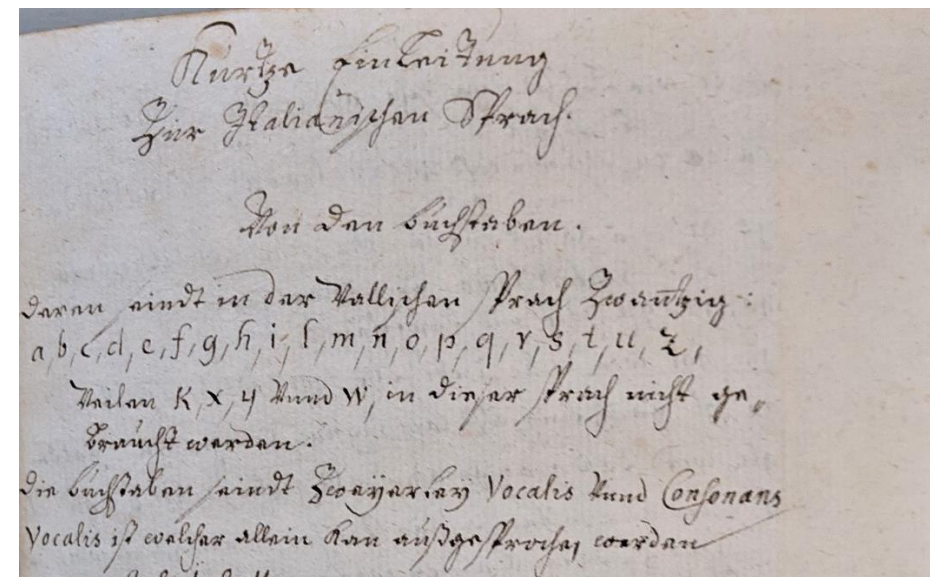 Kurtze Einleitung
Zur Italiänischen Sprach.
Von den buchstaben.
Deren seindt in der Wallischen Sprach Zwantzig:
a, b, c, d, e, f, g, h, i, l, m, n, o, p, q, r, s, t, u, z,
Weilen K, x, y Vnnd W, in dieser sprach nicht ge„
braucht werden.
Die buchstaben seindt Zweyerley Vocalis Vnnd Consonans
Vocalis ist welcher allein kan außgesprochen werden